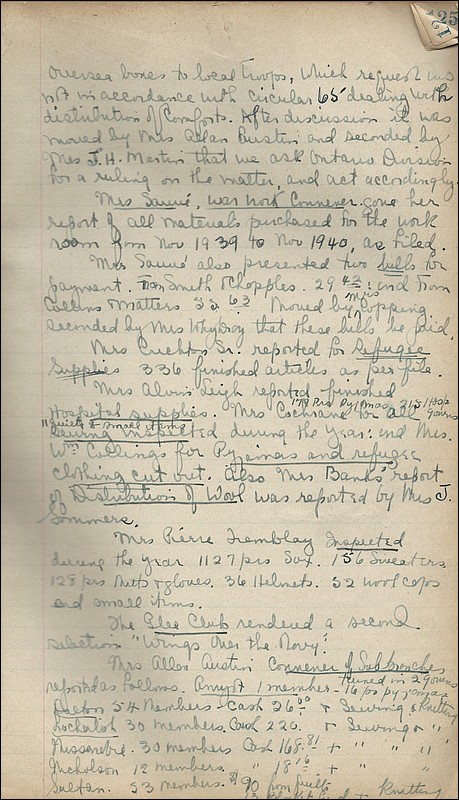 125
12
oversea boxes to local troops, which request was
not in accordance with circular 65 dealing with
distribution of comforts. After discussion it was
moved by Mrs Allan Austin and seconded by
Mrs J. H. Martin that we ask Ontario Division
for a ruling on the matter, and act accordingly.
Mrs Sauvé, war work Convener gave her
report of all materials purchased for the work
room from Nov 1939 to Nov 1940, as filed.
Mrs Sauvé also presented two bills for
payment. from Smith & Chapples. 29 43 and from
Collins & Matters 55.63 Moved by Mrs Topping
seconded by Mrs that these bills be paid.
Mrs Sr. reported for Refugee
Supplies 336 finished articles as per file.
Mrs Alvin Leigh reported finished
178 Prs Pyjamas
Hospital supplies. Mrs Cochrane for all gowns
11 quilts & small items
sewing inspected during the year. and Mrs.
Wm for Pyjamas and refugee
clothing cut out. Also Mrs Banks' report
of Distribution of Wool was reported by Mrs J.
Sommers.
Mrs Pierre Tremblay Inspected
during the year 1127 prs Sox. 156 Sweaters
128 prs Mitts & gloves. 36 Helmets. 52 wool caps
and small items.
The Glee Club rendered a second
selection "Wings Over the Navy".
Mrs Allan Austin Convener of Subbranches
reported as follows. Amyot 1 member - 16 prs pyjamas
turned in 29 gowns
54 Members - Cash 26.00 & Sewing & Knitting
Lochalsh 30 members. Cash 220. & Sewing & "
Missanabie. 30 members Cash 168.81 + " " "
Nicholson 12 members. " 18 + " " "
Sultan. 53 members. 90 from quilts
Knitting